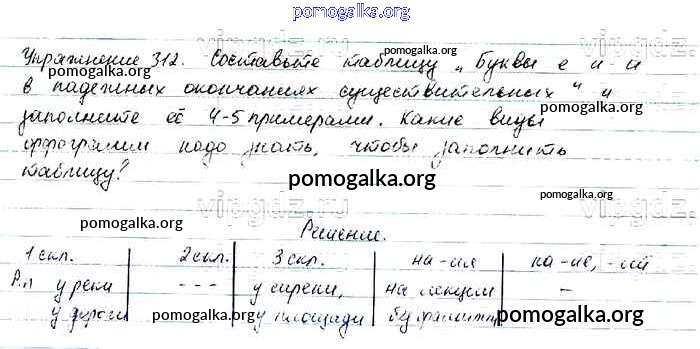 pomogalka.org
Упражнение 312. Составьте таблицу „Буквы е и - и
pomogalka.org
в падежных окончаниях существительных“ и
pomogalka.org
заполните её 4-5 примерами. Какие виды
орфограмм надо знать, чтобы заполнить
таблицу?
pomogalka.org
vipgdz.ru
pomogalka.org
pomogalka.org
Решение.
1 скл. 2 скл. 3 скл. на -ия на -ие, -ий
Р.п у реки - - - у сирени, на лекции –
у дороги у площади
pomogalka.org